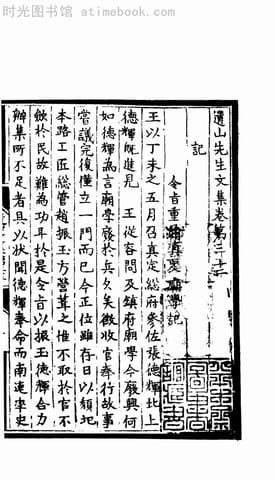 时光图书馆 - atimebook.com
遺山先生文集卷第三十二
記
令旨重修真定廟學記
王以丁未之五月召真定總府參佐張德輝北上
德輝既進見 王從容問及鎮府廟學今廢興何
如德輝為言廟學廢於兵久矣徴收官奉行故事
嘗議完復僅立一門而已今正位雖存日以頹圮
本路工匠總管趙振玉方營葺之惟不取於官不
斂於民故難為功耳於是令旨以振玉德輝合力
辦集所不足者具以狀聞德輝奉命而南連率史